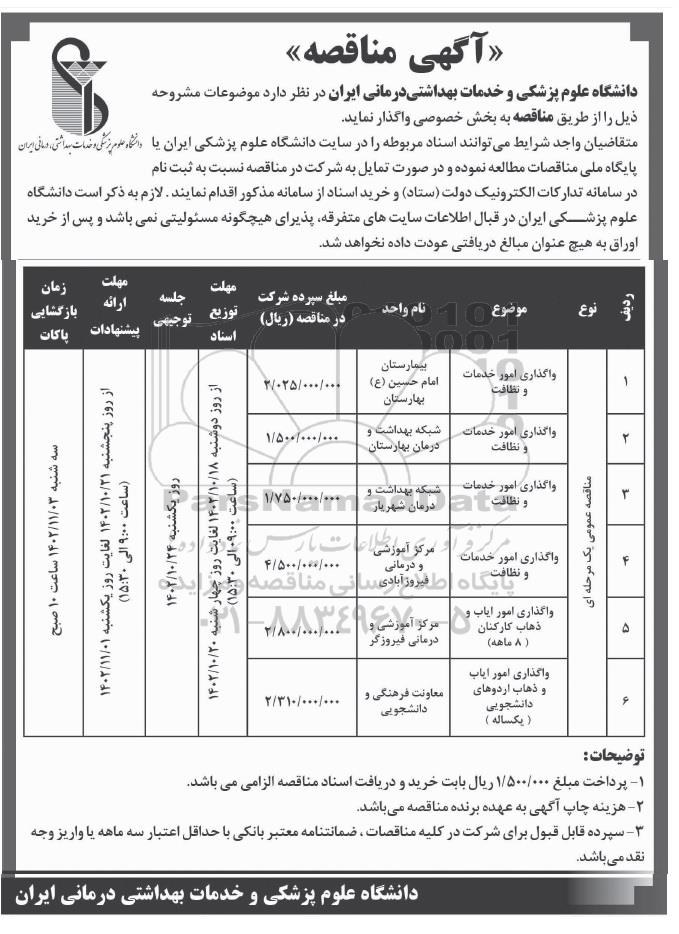 «آگهی مناقصه»
دانشگاه علوم پزشکی و خدمات بهداشتی، درمانی ایران
دانشگاه علوم پزشکی و خدمات بهداشتی درمانی ایران در نظر دارد موضوعات مشروحه
ذیل را از طریق مناقصه به بخش خصوصی واگذار نماید.
متقاضیان واجد شرایط می‌توانند اسناد مربوطه را در سایت دانشگاه علوم پزشکی ایران یا
پایگاه ملی مناقصات مطالعه نموده و در صورت تمایل به شرکت در مناقصه نسبت به ثبت نام
در سامانه تدارکات الکترونیک دولت (ستاد) و خرید اسناد از سامانه مذکور اقدام نمایند . لازم به ذکر است دانشگاه
علوم پزشکی ایران در قبال اطلاعات سایت های متفرقه، پذیرای هیچگونه مسئولیتی نمی باشد و پس از خرید
اوراق به هیچ عنوان مبالغ دریافتی عودت داده نخواهد شد.
ردیف
نوع
موضوع
نام واحد
مبلغ سپرده شرکت
در مناقصه (ریال)
مهلت
توزیع
اسناد
جلسه
توجیهی
مهلت
ارائه
پیشنهادات
زمان
بازگشایی
پاکات
مناقصه عمومی یک مرحله ای
۱
واگذاری امور خدمات
و نظافت
بیمارستان
امام حسین (ع)
بهارستان
۲/۰۲۵/۰۰۰/۰۰۰
۲
واگذاری امور خدمات
و نظافت
شبکه بهداشت و
درمان بهارستان
۱/۵۰۰/۰۰۰/۰۰۰
۳
واگذاری امور خدمات
و نظافت
شبکه بهداشت و
درمان شهریار
۱/۷۵۰/۰۰۰/۰۰۰
۴
واگذاری امور خدمات
و نظافت
مرکز آموزشی
و درمانی
فیروزآبادی
۴/۵۰۰/۰۰۰/۰۰۰
۵
واگذاری امور ایاب و
ذهاب کارکنان
( ۸ ماهه)
مرکز آموزشی و
درمانی فیروزگر
۲/۸۰۰/۰۰۰/۰۰۰
۶
واگذاری امور ایاب
و ذهاب اردوهای
دانشجویی
( یکساله )
معاونت فرهنگی و
دانشجویی
۲/۳۱۰/۰۰۰/۰۰۰
از روز دوشنبه ۱۴۰۲/۱۰/۱۸ لغایت روز چهارشنبه ۱۴۰۲/۱۰/۲۰
(ساعت ۰۹:۰۰ الی ۱۵:۳۰)
روز یکشنبه ۱۴۰۲/۱۰/۲۴
از روز پنجشنبه ۱۴۰۲/۱۰/۲۱ لغایت روز یکشنبه ۱۴۰۲/۱۱/۰۱
(ساعت ۹:۰۰ الی ۱۵:۳۰)
سه شنبه ۱۴۰۲/۱۱/۰۳ ساعت ۱۰ صبح
ParsNamadData
پایگاه اطلاع رسانی مناقصه و مزایده
۰۲۱-۸۸۳۴۹۶۷۰-۵
توضیحات:
۱- پرداخت مبلغ ۱/۵۰۰/۰۰۰ ریال بابت خرید و دریافت اسناد مناقصه الزامی می باشد.
۲- هزینه چاپ آگهی به عهده برنده مناقصه می‌باشد.
۳- سپرده قابل قبول برای شرکت در کلیه مناقصات ، ضمانتنامه معتبر بانکی با حداقل اعتبار سه ماهه یا واریز وجه
نقد می‌باشد.
دانشگاه علوم پزشکی و خدمات بهداشتی درمانی ایران